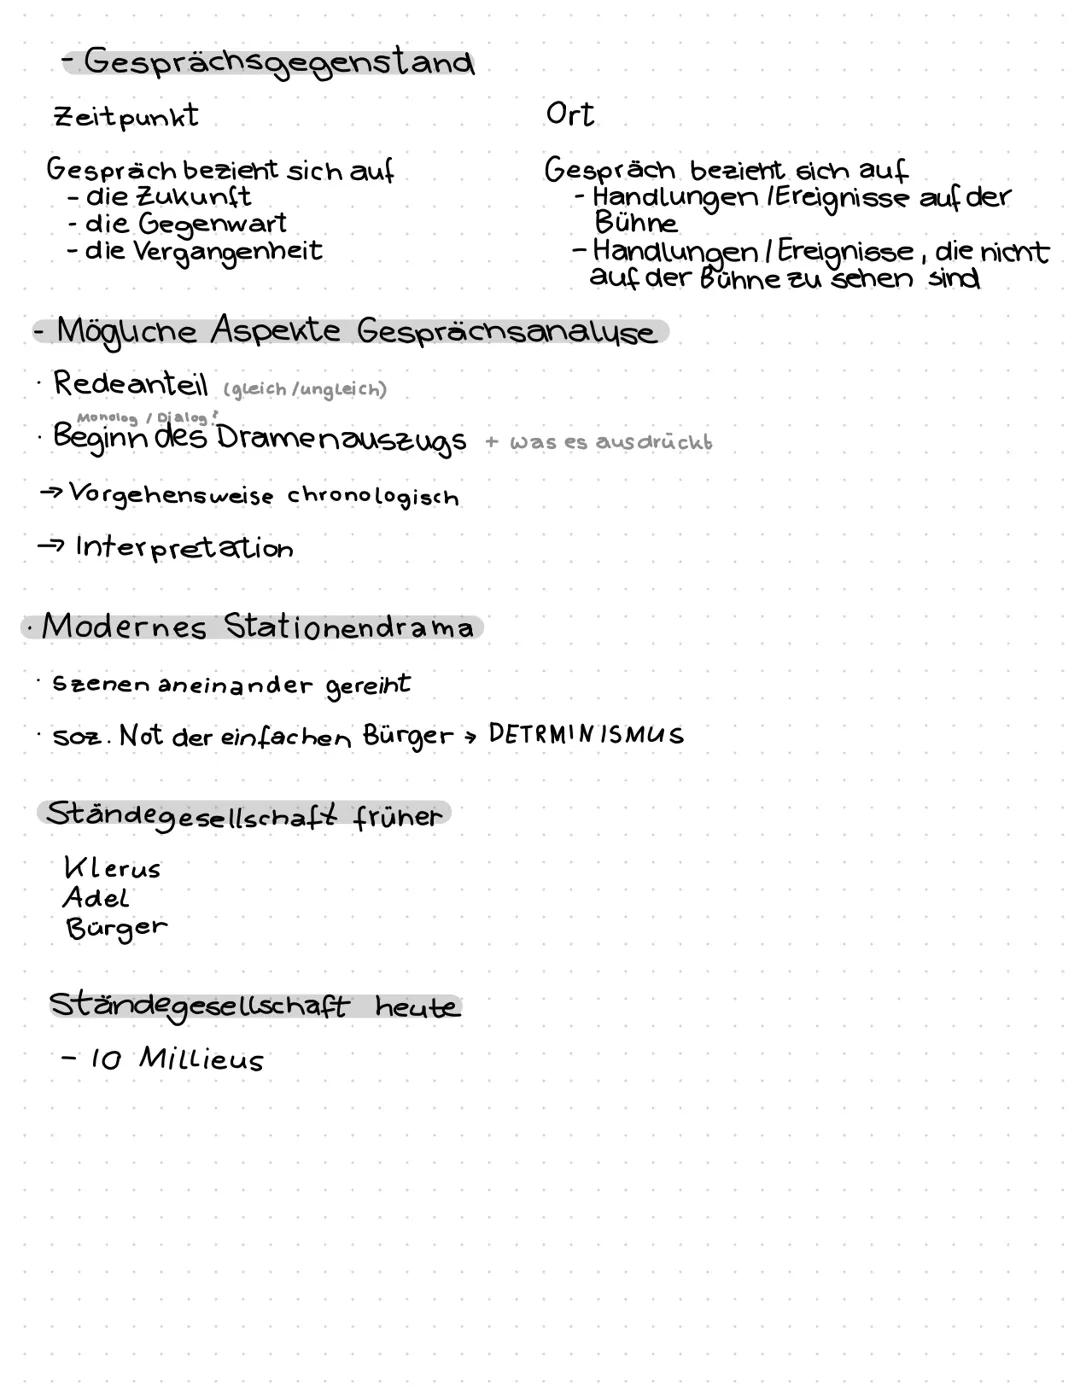 - Gesprächsgegenstand
Zeitpunkt
Gespräch bezieht sich auf
- die Zukunft
- die Gegenwart
- die Vergangenheit
Ort
Gespräch bezieht sich auf
- Handlungen / Ereignisse auf der
Bühne
- Handlungen / Ereignisse, die nicht
auf der Bühne zu sehen sind
- Mögliche Aspekte Gesprächsanalyse
· Redeanteil (gleich / ungleich)
Monolog / Dialog?
· Beginn des Dramenauszugs + was es ausdrückt
→ Vorgehensweise chronologisch
→ Interpretation
· Modernes Stationendrama
· Szenen aneinander gereiht
· soz. Not der einfachen Bürger → DETRMINISMUS
Ständegesellschaft früher
Klerus
Adel
Bürger
Ständegesellschaft heute
- 10 Millieus